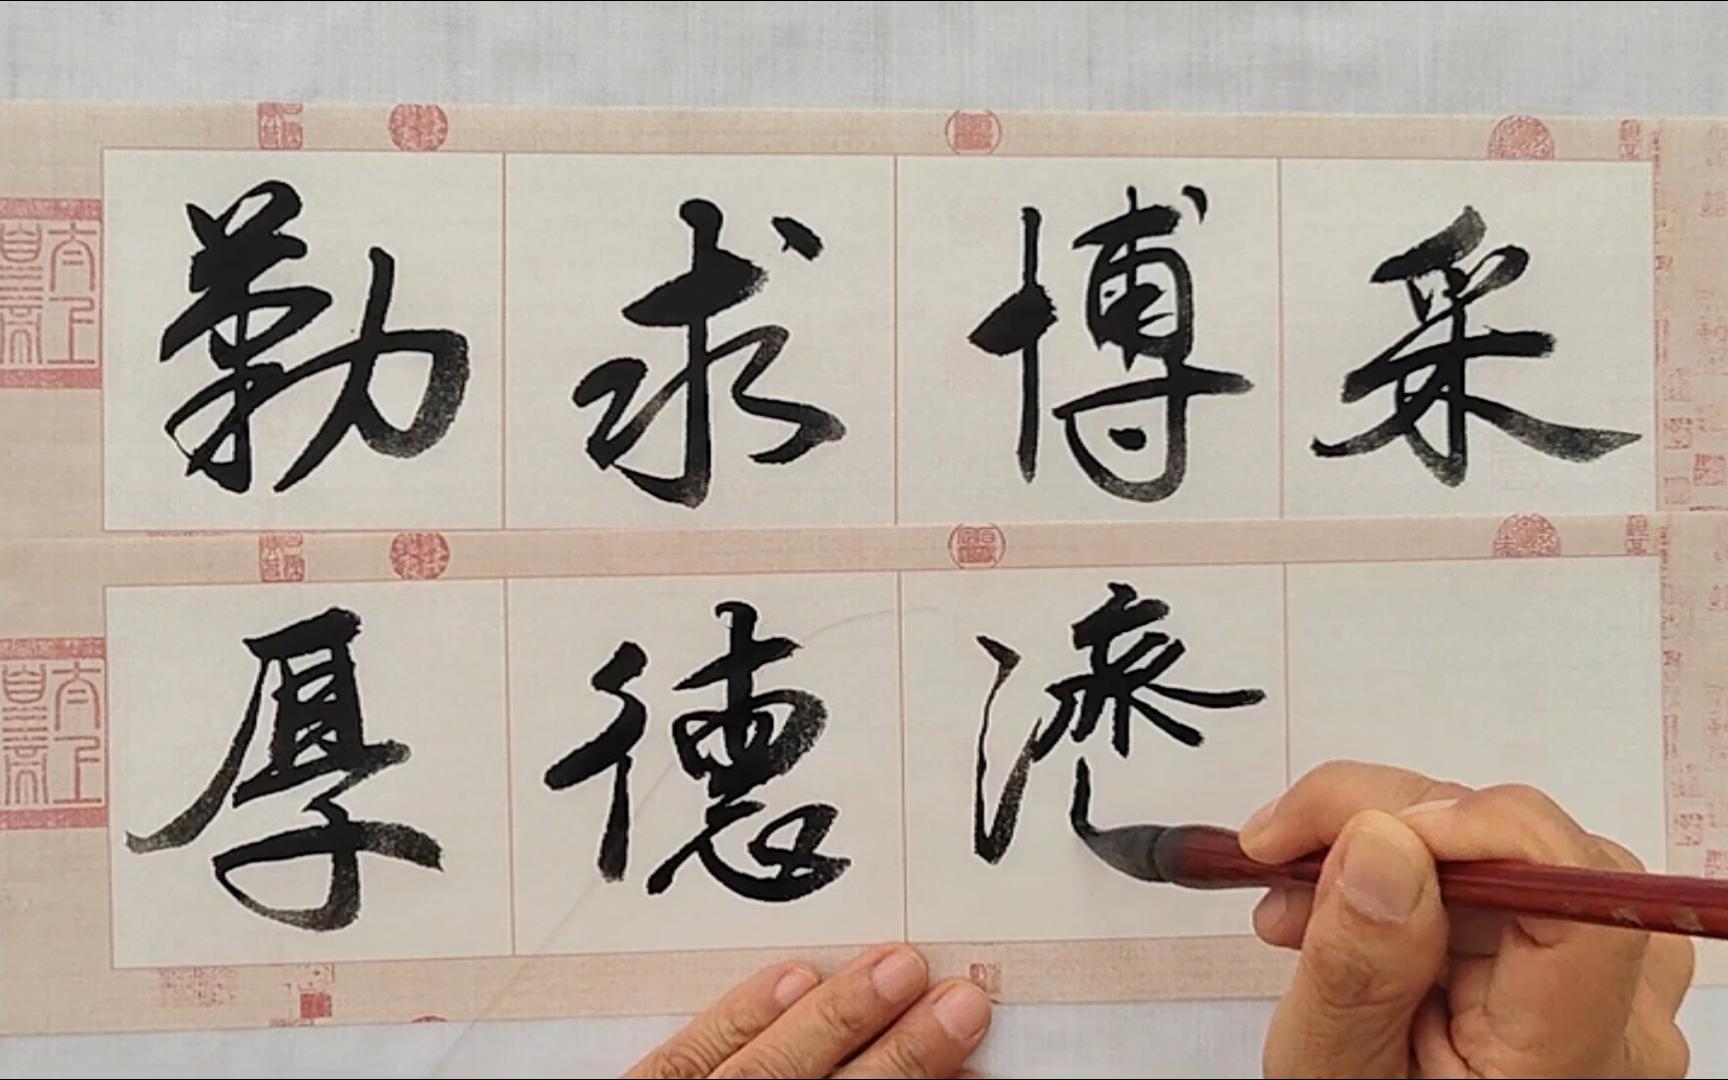 勤求博采
厚德濟